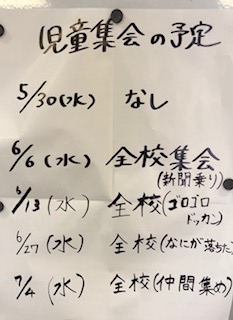 児童集会の予定
5/30(水) なし
6/6(水) 全校集会
(新聞乗り)
6/13(水) 全校(ゴロゴロ
ドッカン)
6/27(水) 全校(なにが落ちた)
7/4(水) 全校(仲間集め)